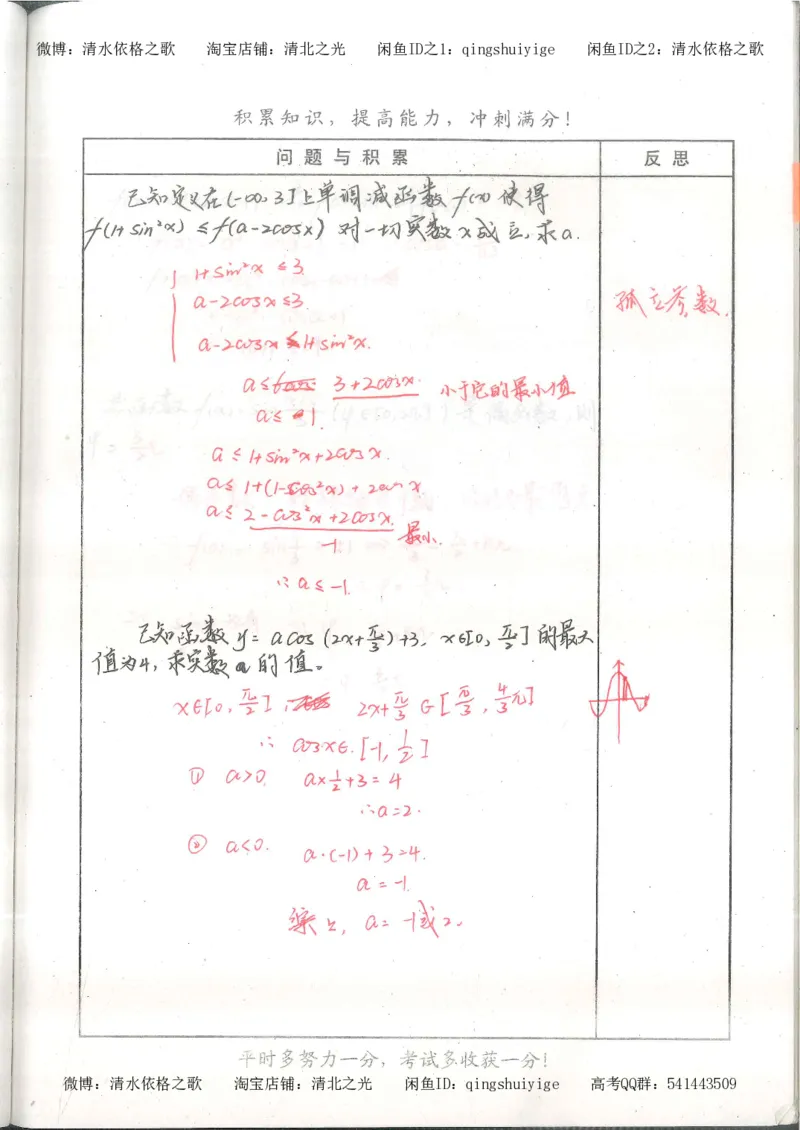 微博：清水依格之歌 淘宝店铺：清北之光 闲鱼ID之1：qingshuiyige 闲鱼ID之2：清水依格之歌
积累知识，提高能力，冲刺满分！
问题与积累 反思
已知定义在(-∞,3]上单调减函数f(x)使得
f(1+sin²x)≤f(a-2cosx)对一切实数x成立,求a.
1+sin²x≤3
a-2cosx≤3.
孤立参数.
a-2cosx≤1+sin²x.
a≤3+2cosx. 小于它的最小值
a≤1.
a≤1+sin²x+2cosx.
a≤1+(1-cos²x)+2cosx
a≤2-cos²x+2cosx.
-1 最小.
∴a≤-1.
已知函数y=acos(2x+π/3)+3, x∈[0,π/2]的最大
值为4,求实数a的值。
x∈[0,π/2] 2x+π/3∈[π/3,4/3π]
∴cosx∈[-1,1/2]
① a>0. a×1/2+3=4
∴a=2.
② a<0. a·(-1)+3=4.
a=-1.
综上, a=-1或2.
平时多努力一分，考试多收获一分！
微博：清水依格之歌 淘宝店铺：清北之光 闲鱼ID：qingshuiyige 高考QQ群：541443509